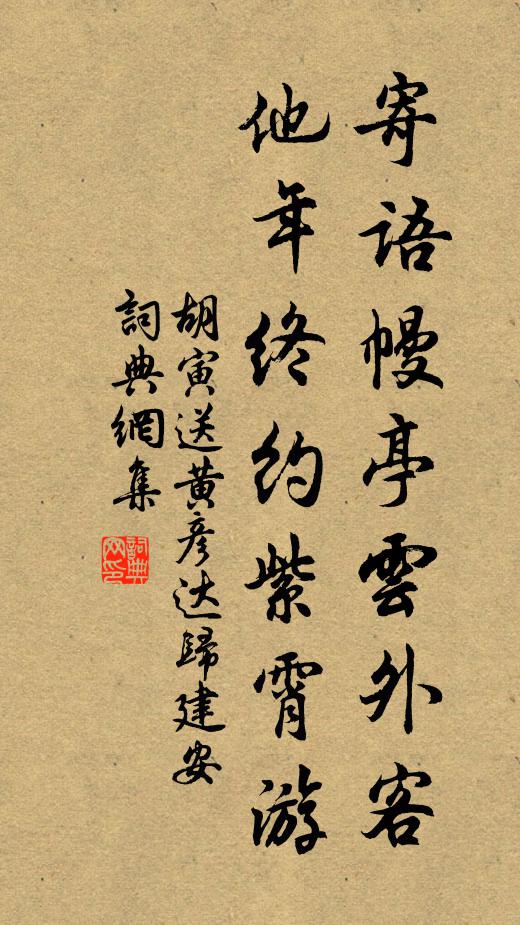 寄語幔亭雲外客
他年終約紫霄游
胡寅送黄彦达歸建安
詞典網集
詞典网印